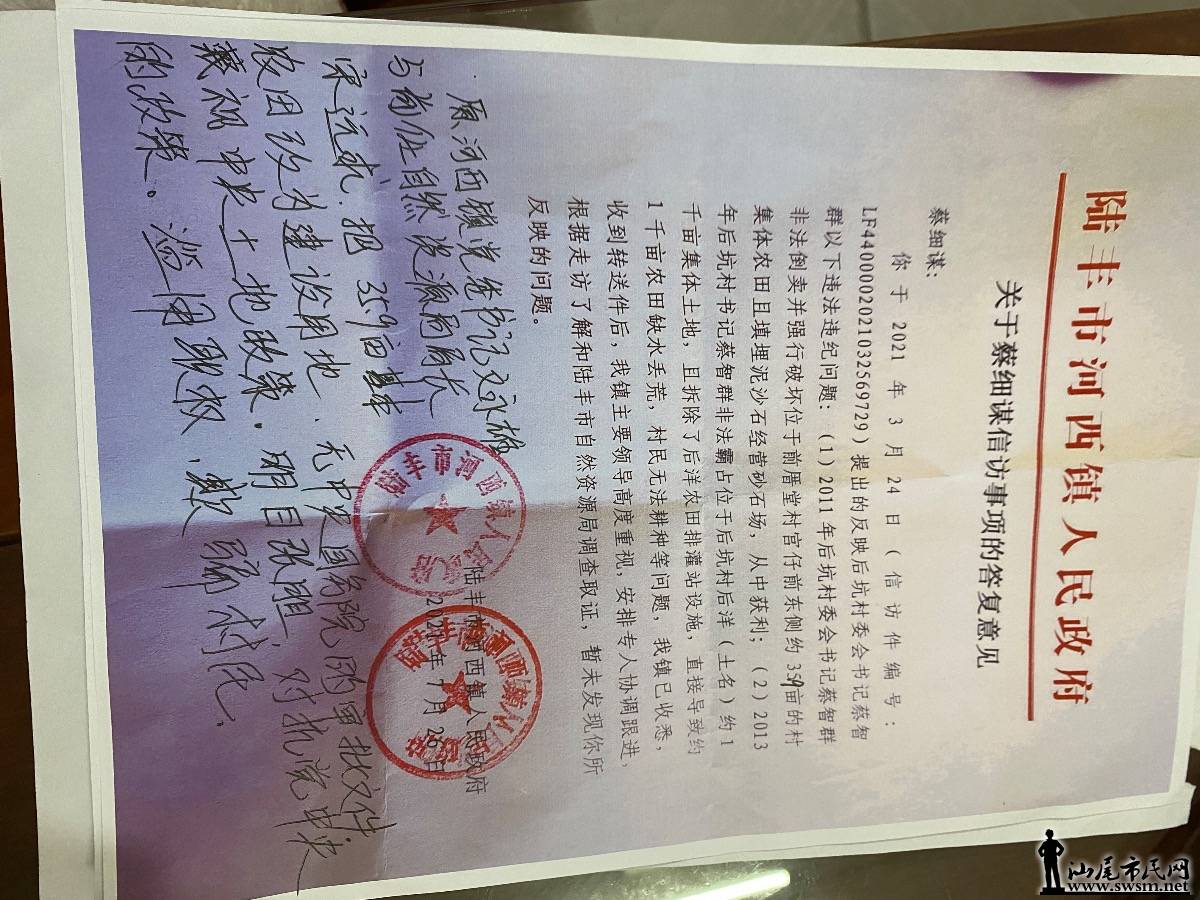 陆丰市河西镇人民政府
关于蔡细谋信访事项的答复意见
蔡细谋：
你于2021年3月24日（信访件编号：
LF4400002021032569729）提出的反映后坑村委会书记蔡智
群以下违法违纪问题：（1）2011年后坑村委会书记蔡智群
非法倒卖并强行破坏位于前厝堂村宫仔前东侧约359亩的村
集体农田且填埋泥沙石经营砂石场，从中获利；（2）2013
年后坑村书记蔡智群非法霸占位于后坑村后洋（土名）约1
千亩集体土地，且拆除了后洋农田排灌站设施，直接导致约
1千亩农田缺水丢荒，村民无法耕种等问题，我镇已收悉，
收到转送件后，我镇主要领导高度重视，安排专人协调跟进，
根据走访了解和陆丰市自然资源局调查取证，暂未发现你所
反映的问题。
陆丰市河西镇人民政府
2021年7月26日
原河西镇党委书记
与前任自然资源局局长
把359亩基本
农田改为建设用地.无中央国务院的审批文件
藐视中央土地政策.明目张胆对抗党中央
的政策。滥用职权,欺骗村民.
汕尾市民网
www.swsm.net